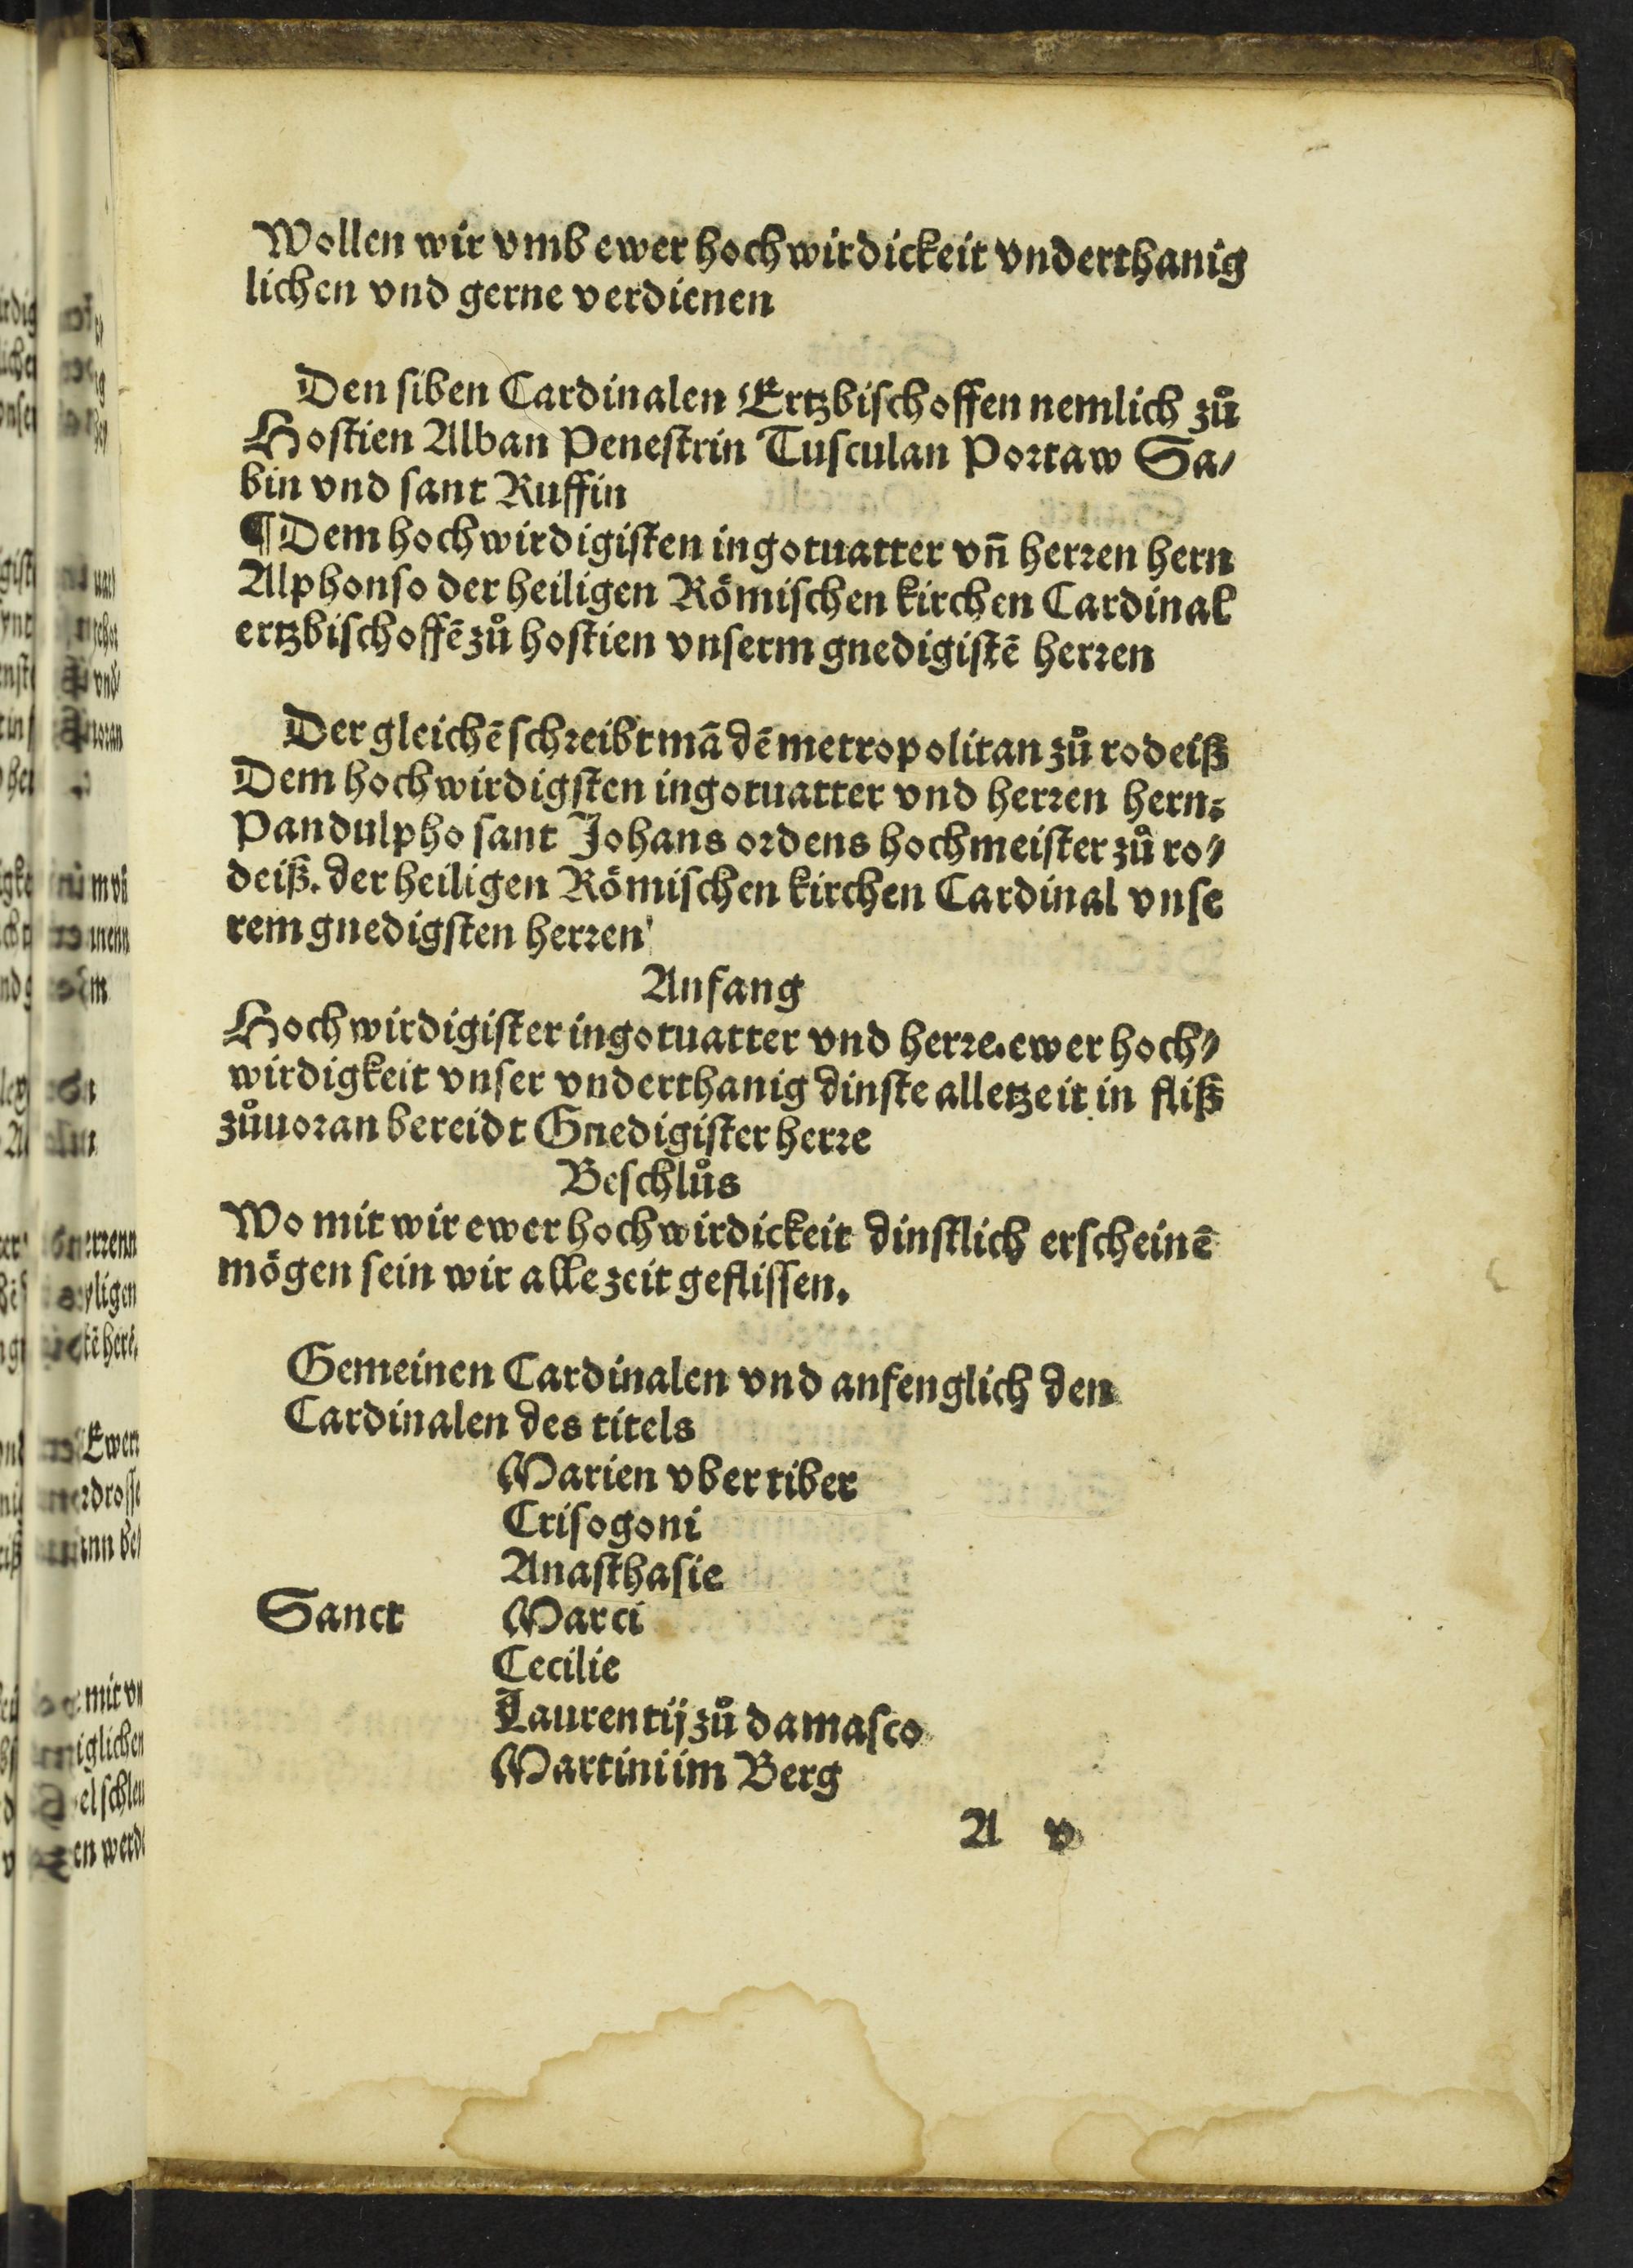 Wollen wir vmb ewer hochwirdickeit vnderthanig
lichen vnd gerne verdienen
Den siben Cardinalen Ertzbischoffen nemlich zů
Hostien Alban Penestrin Tusculan Portaw Sa/
bin vnd sant Ruffin
¶ Dem hochwirdigisten ingotuatter vn̄ herren hern
Alphonso der heiligen Römischen kirchen Cardinal
ertzbischoffē zů hostien vnserm gnedigistē herren
Der gleichē schreibt mā dē metropolitan zů rodeiß
Dem hochwirdigsten ingotuatter vnd herren hern:
Pandulpho sant Johans ordens hochmeister zů ro/
deiß. der heiligen Römischen kirchen Cardinal vnse
rem gnedigsten herren
Anfang
Hochwirdigister ingotuatter vnd herre. ewer hoch/
wirdigkeit vnser vnderthanig dinste alletzeit in fliß
zůuoran bereidt Gnedigister herre
Beschlůs
Wo mit wir ewer hochwirdickeit dinstlich erscheinē
mögen sein wir alle zeit geflissen.
Gemeinen Cardinalen vnd anfenglich den
Cardinalen des titels
Marien vber tiber
Crisogoni
Anasthasie
Sanct Marci
Cecilie
Laurentij zů damasco
Martini im Berg
A v